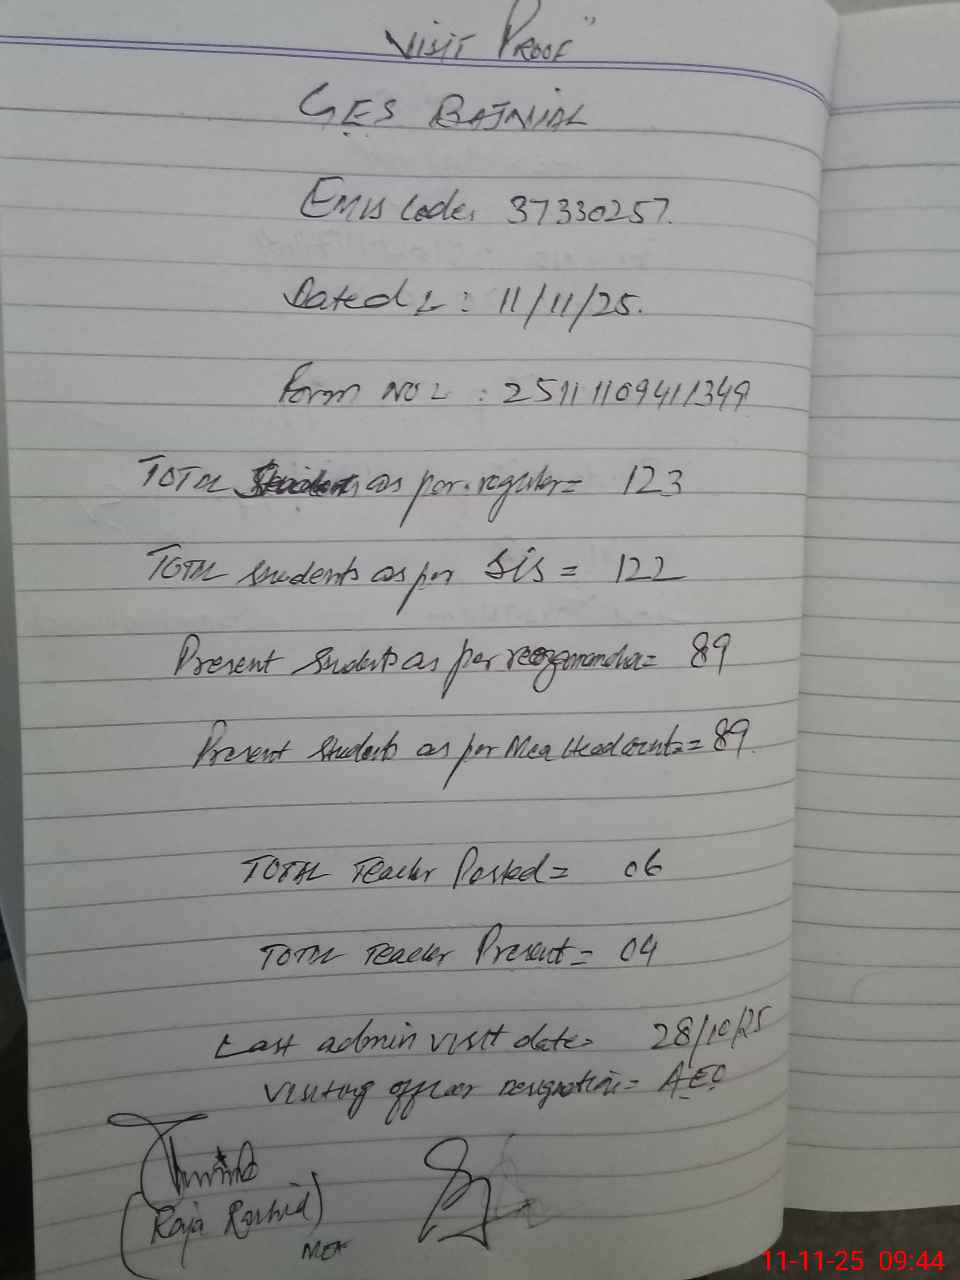 "Visit Proof"
GES BAJNIAL
Emis Code: 37330257.
Dated : 11/11/25.
Form No : 25111109411349
Total Students as per register = 123
Total Students as per SIS = 122
Present Students as per = 89
Present Students as per Mea Headcount = 89.
Total Teacher Posted = 06
Total Teacher Present = 04
Last admin visit date = 28/10/25
Visiting officer designation = AEO
(Raja Rashid)
MEA
11-11-25 09:44